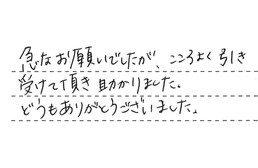 急なお願いでしたが、こころよく引き
受けて頂き助かりました。
どうもありがとうございました。